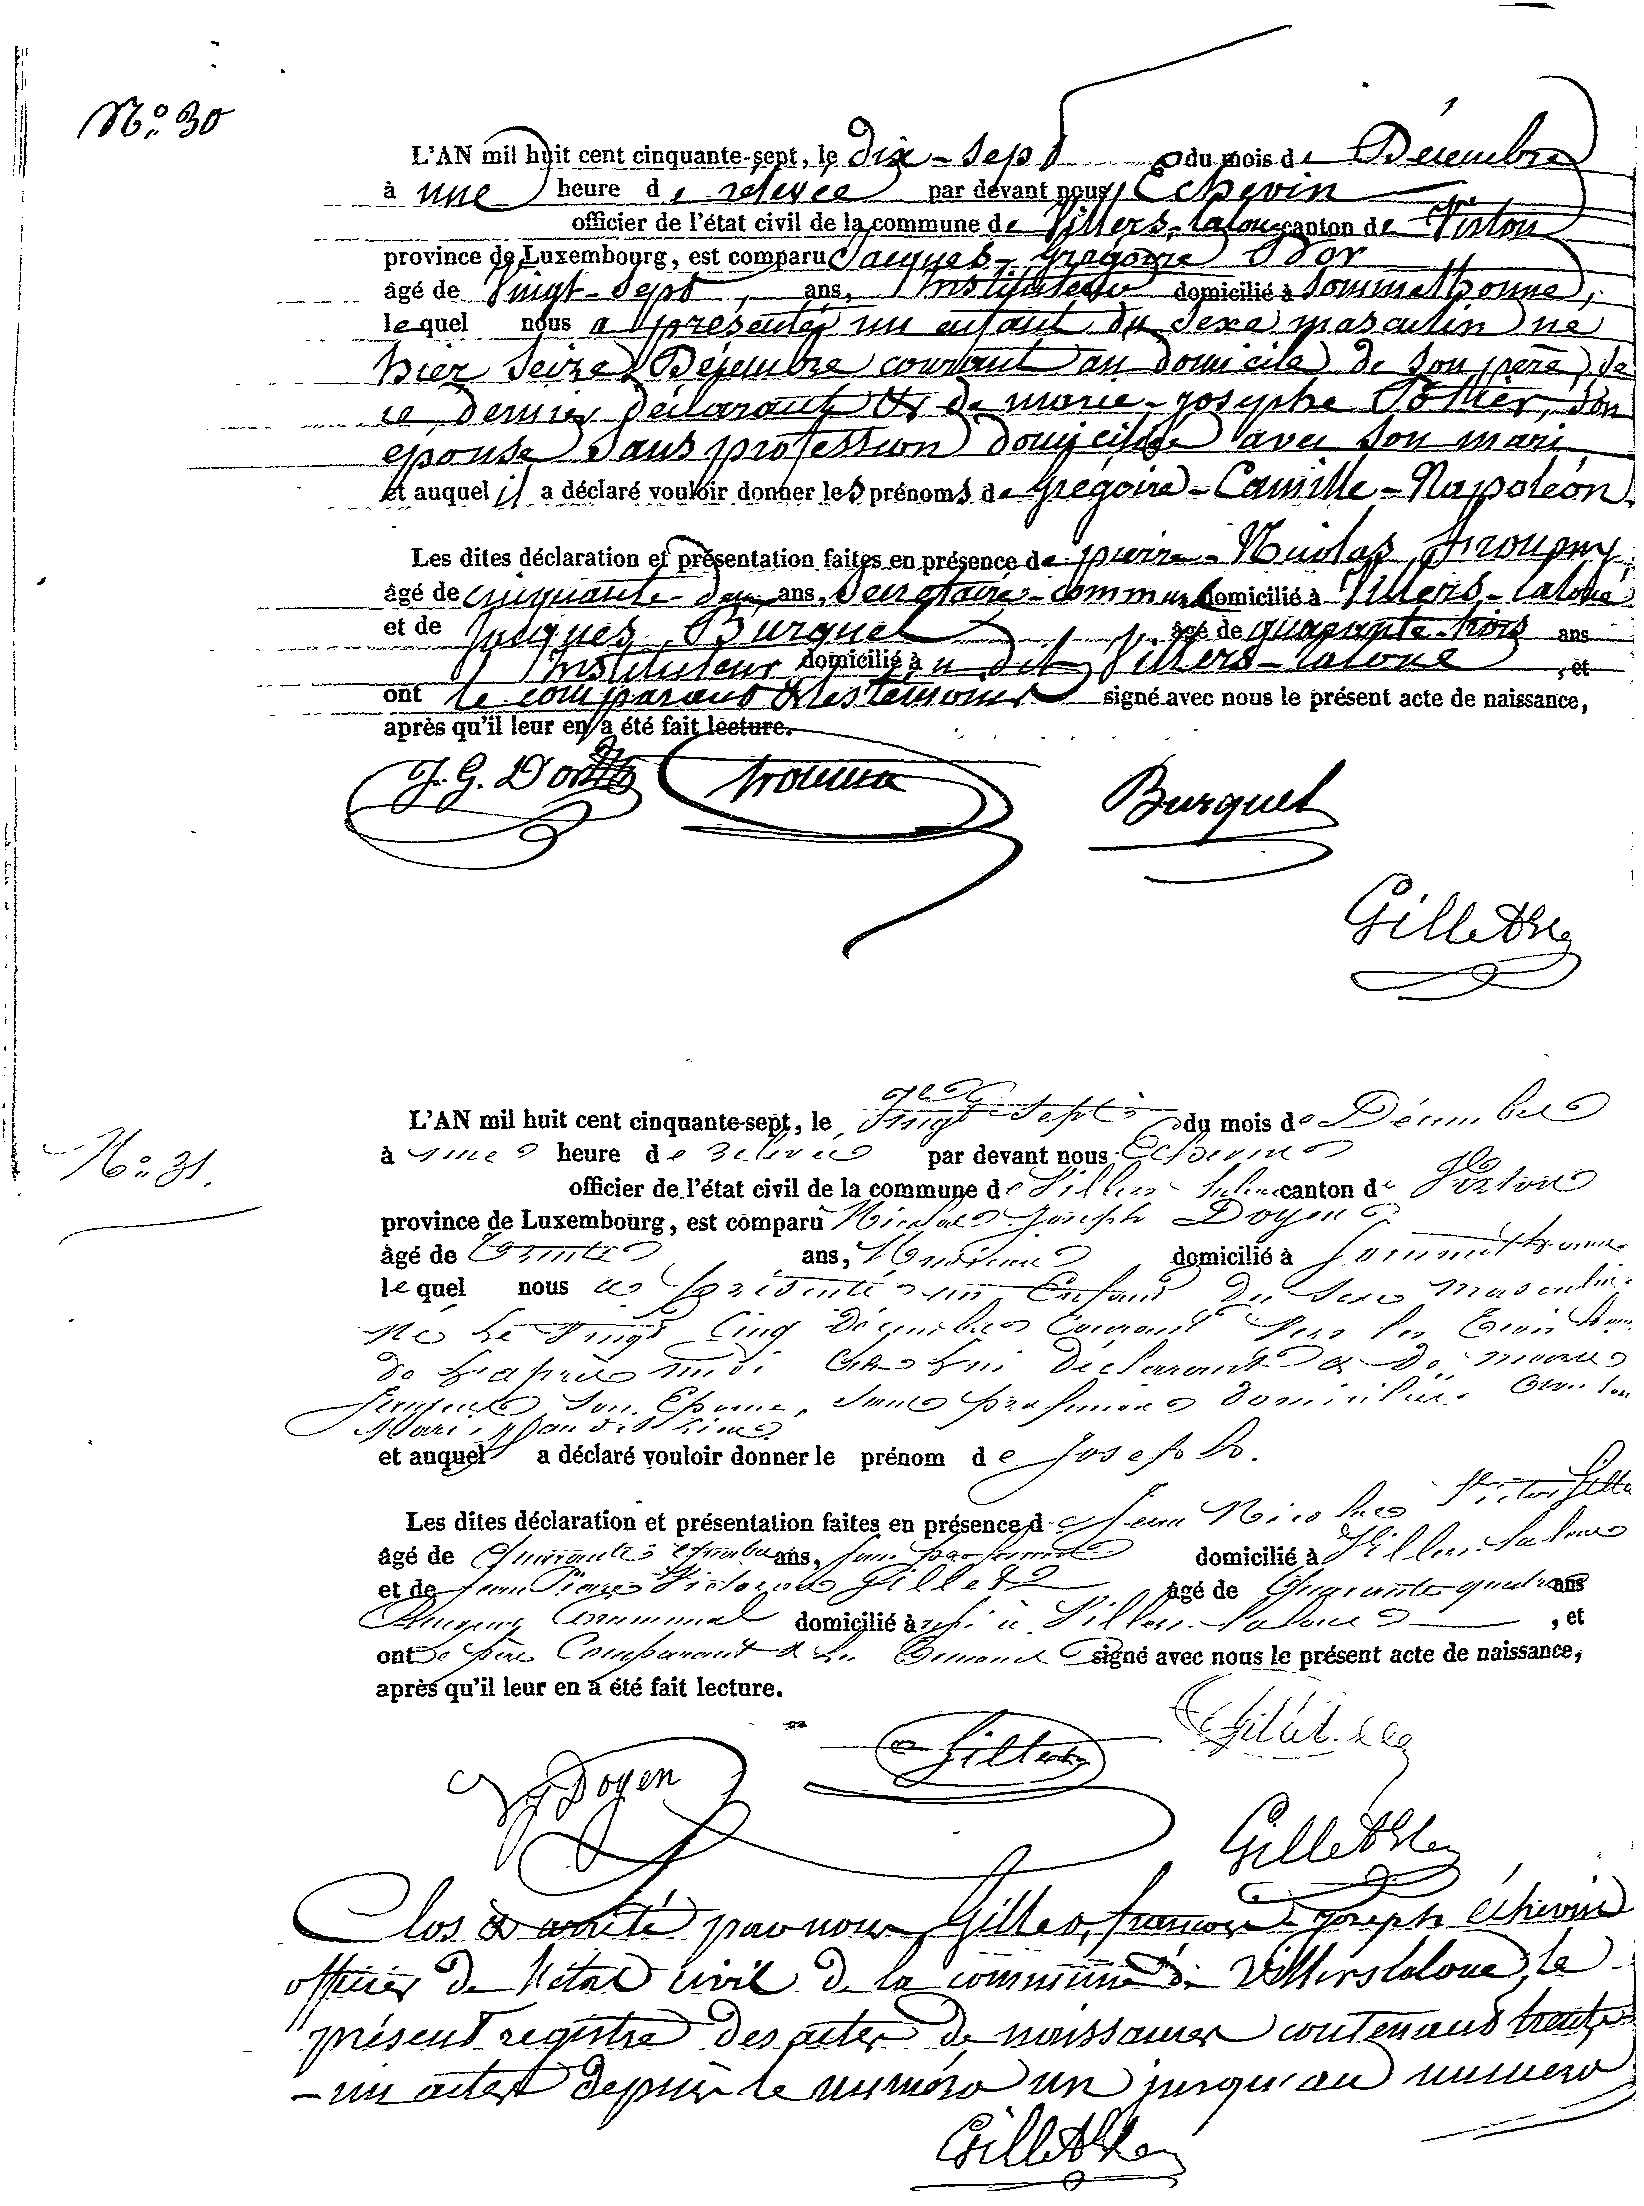 N.º 30
L'AN mil huit cent cinquante-sept, le dix-sept du mois de Décembre
à une heure de relevée par devant nous Echevin
officier de l'état civil de la commune de Villers-Laloue canton de Virton
province de Luxembourg, est comparu Jacques-Grégoire Dor
âgé de Vingt-Sept ans, Instituteur domicilié à Sommethonne,
lequel nous a présenté un enfant du sexe masculin né
hier seize Décembre courant au domicile de son père, de
ce dernier déclarant & de marie-josephe Pothier, son
épouse sans profession domiciliée avec son mari
et auquel il a déclaré vouloir donner les prénoms de Grégoire-Camille-Napoléon
Les dites déclaration et présentation faites en présence de pierre-Nicolas
âgé de cinquante-deux ans, Secrétaire-communal domicilié à Villers-Laloue
et de Jacques Burquel âgé de quarante-trois ans
Instituteur domicilié à u dit Villers-laloue , et
ont le comparant & les témoins signé avec nous le présent acte de naissance,
après qu'il leur en a été fait lecture.
J. G. Dor Burquel
N.º 31.
L'AN mil huit cent cinquante-sept, le Vingt Sept du mois de Décembre
à une heure de relevée par devant nous Echevin
officier de l'état civil de la commune de Villers-Laloue canton de Virton
province de Luxembourg, est comparu Nicolas Joseph Doyen
âgé de trente ans, domicilié à Sommethonne
lequel nous a présenté un Enfant du sexe masculin
né le Vingt Cinq Décembre Courant vers les trois heures
de l'après midi chez lui déclarant & de marie
son Epouse, sans profession domiciliée avec son
Mari
et auquel a déclaré vouloir donner le prénom de Joseph.
Les dites déclaration et présentation faites en présence de Jean Nicolas Victor
âgé de quarante ans, sans profession domicilié à Villers-Laloue
et de Jean Pierre Gillet âgé de Quarante quatre ans
Communal domicilié à Villers-Laloue , et
ont le père Comparant & les témoins signé avec nous le présent acte de naissance,
après qu'il leur en a été fait lecture.
Doyen
Clos & arrêté par nous Gilles, françois-joseph échevin
officier de l'état civil de la commune de Villers laloue, le
présent registre des actes de naissances contenant trente
-un actes depuis le numéro un jusqu'au numéro